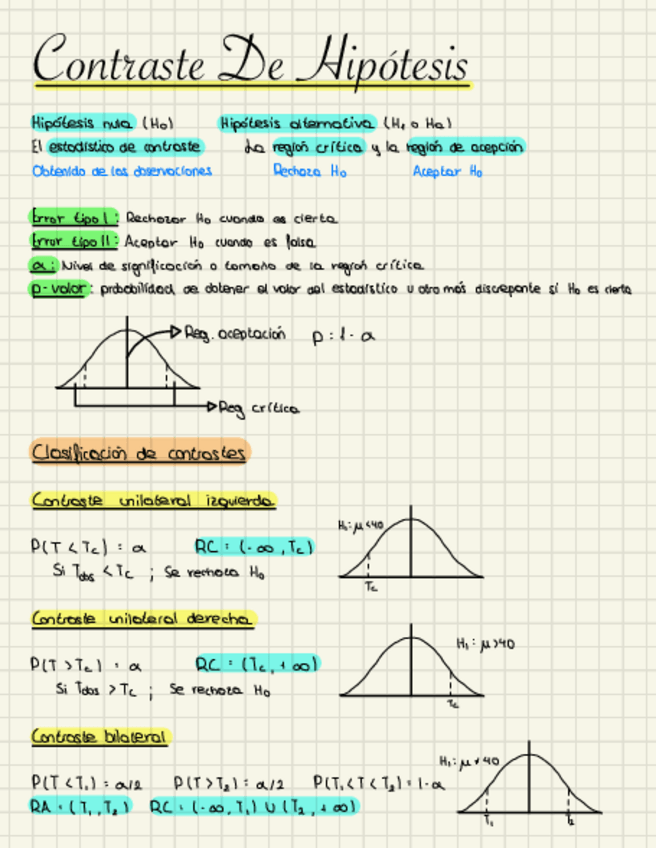 Contraste De Hipótesis
Hipótesis nula (H₀) Hipótesis alternativa (H₁ o Ha)
El estadístico de contraste La región crítica y la región de acepción
Obtenido de las observaciones Rechaza H₀ Aceptar H₀
Error tipo I: Rechazar H₀ cuando es cierta
Error tipo II: Aceptar H₀ cuando es falsa
α: Nivel de significación o tamaño de la región crítica
p-valor: probabilidad de obtener el valor del estadístico u otro más discrepante si H₀ es cierta
Reg. aceptación p = 1 - α
Reg crítica
Clasificación de contrastes
Contraste unilateral izquierda
H₁: μ<40
P(T < Tc) = α RC = (-∞, Tc)
Si Tobs < Tc ; Se rechaza H₀
Tc
Contraste unilateral derecha
H₁: μ>40
P(T > Tc) = α RC = (Tc, +∞)
Si Tobs > Tc ; Se rechaza H₀
Tc
Contraste bilateral
H₁: μ≠40
P(T < T₁) = α/2 P(T > T₂) = α/2 P(T₁ < T < T₂) = 1-α
RA = (T₁, T₂) RC = (-∞, T₁) U (T₂, +∞)
T₁ T₂